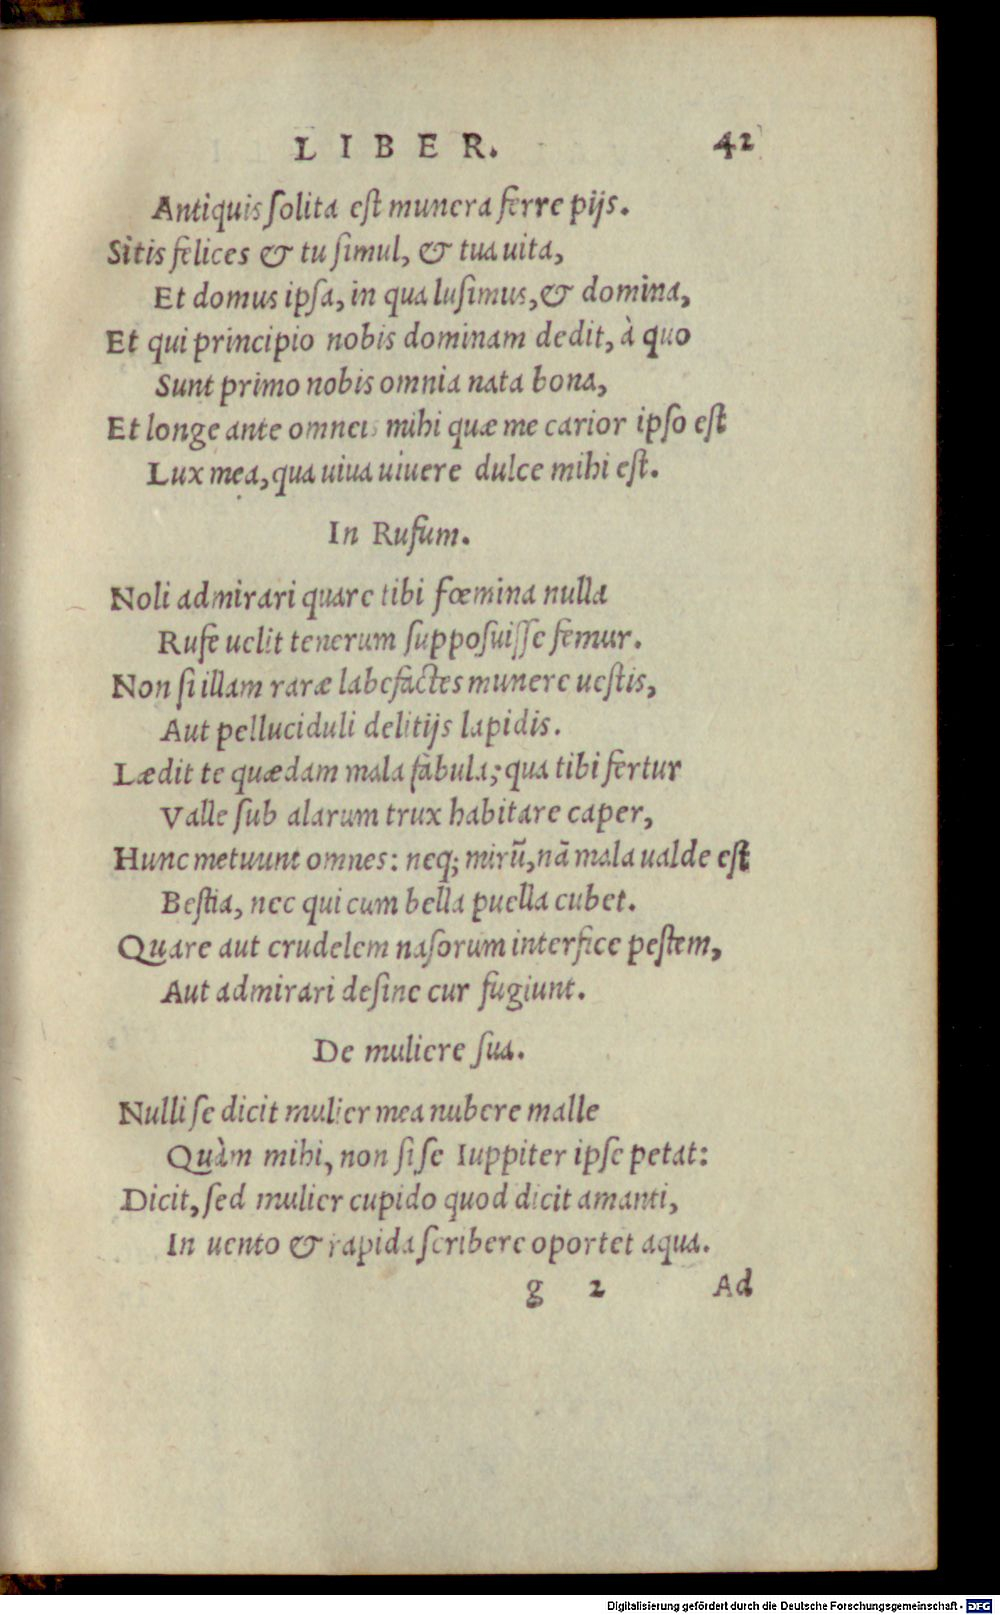 LIBER. 42
Antiquis ſolita eſt munera ferre pijs.
Sitis felices & tu ſimul, & tua uita,
Et domus ipſa, in qua luſimus, & domina,
Et qui principio nobis dominam dedit, à quo
Sunt primo nobis omnia nata bona,
Et longe ante omneis mihi quæ me carior ipſo eſt
Lux mea, qua uiua uiuere dulce mihi eſt.
In Rufum.
Noli admirari quare tibi fœmina nulla
Rufe uelit tenerum ſuppoſuiſſe femur.
Non ſi illam raræ labefactes munere ueſtis,
Aut pelluciduli delitijs lapidis.
Lædit te quædam mala fabula; qua tibi fertur
Valle ſub alarum trux habitare caper,
Hunc metuunt omnes: neq; mirū, nā mala ualde eſt
Beſtia, nec qui cum bella puella cubet.
Quare aut crudelem naſorum interfice peſtem,
Aut admirari deſine cur fugiunt.
De muliere ſua.
Nulli ſe dicit mulier mea nubere malle
Quàm mihi, non ſi ſe Iuppiter ipſe petat:
Dicit, ſed mulier cupido quod dicit amanti,
In uento & rapida ſcribere oportet aqua.
g 2 Ad
Digitalisierung gefördert durch die Deutsche Forschungsgemeinschaft - DFG